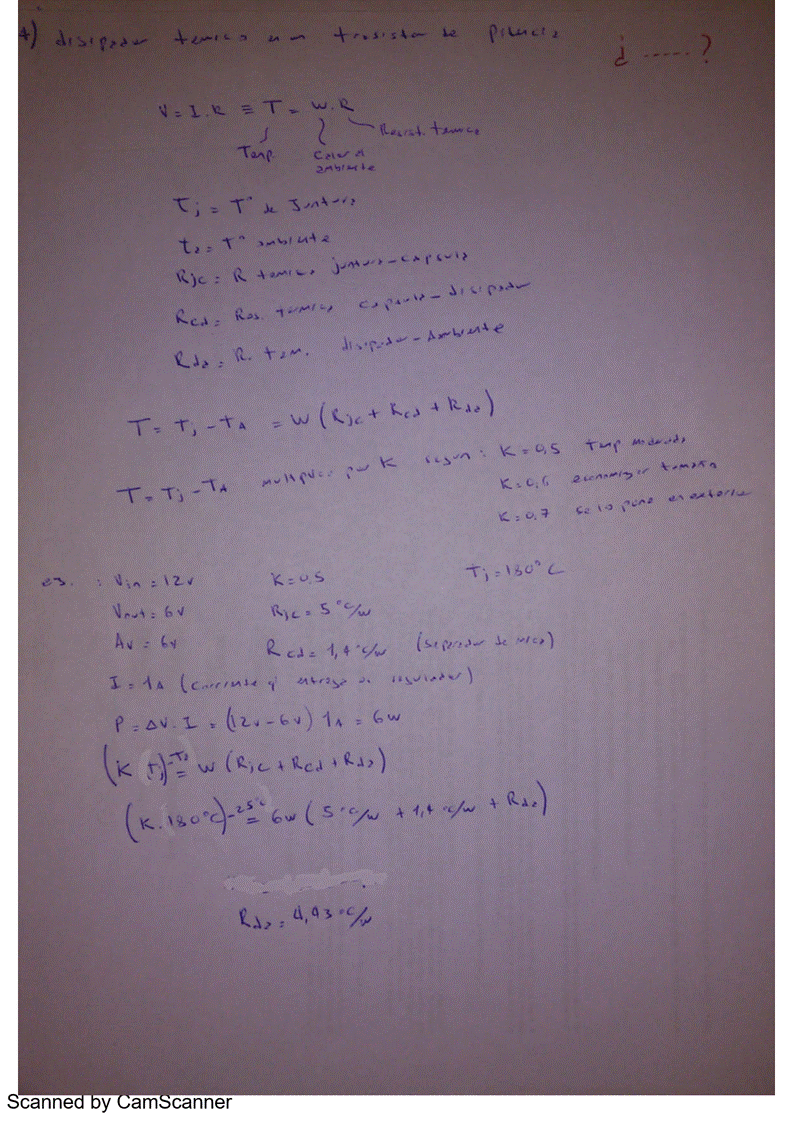 disipador termico en un trasistor de potencia
¿ ...... ?
V = I . R ≡ T = W . R
Resist. termica
Temp. Calor al
ambiente
Tj = T° de Juntura
ta = T° ambiente
Rjc = R termica juntura-capsula
Rcd = Res. termica capsula-disipador
Rda = R. tem. disipador-Ambiente
T = Tj - TA = W (Rjc + Rcd + Rda)
T = Tj - TA multiplico por K segun : K = 0,5 Temp moderada
K = 0,6 economizar tamaño
K = 0,7 se lo pone en exterior
ej. : Vin = 12v K = 0,5 Tj = 180°C
Vout = 6v Rjc = 5 °C/W
Av = 6v Rcd = 1,4 °C/W (separador de mica)
I = 1A (corriente q' entrega el regulador)
P = ΔV . I = (12v - 6v) 1A = 6W
(K Tj) - Ta = W (Rjc + Rcd + Rda)
(K . 180°C) - 25°C = 6W (5 °C/W + 1,4 °C/W + Rda)
Rda = 4,43 °C/W
Scanned by CamScanner